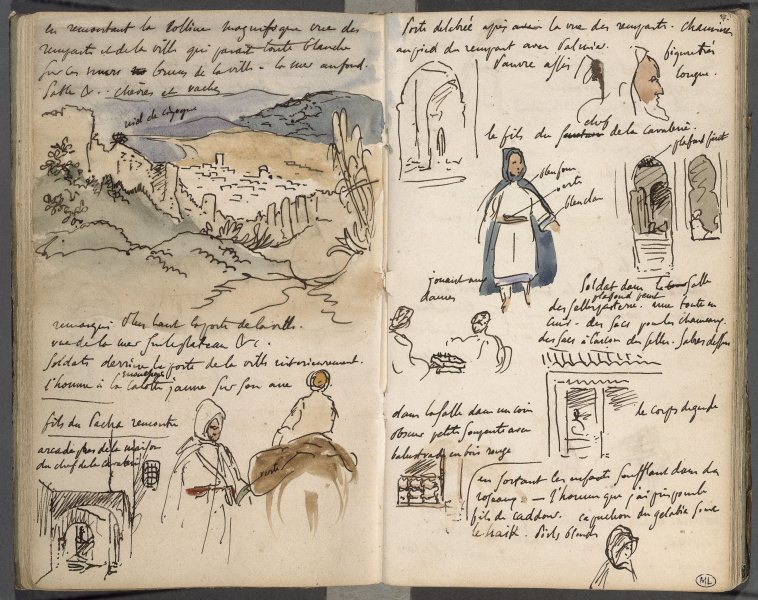 en remontant la colline magnifique vue des
remparts et de la ville qui parait toute blanche
sur les murs bruns de la ville - la mer au fond.
Sable &c. chèvres et vaches
nid de cigogne
remarqué plus haut la porte de la ville.
vue de la mer sur le plateau &c.
Soldats derrière la porte de la ville intérieurement.
l'homme à la calotte jaune sur son âne
fils du Pacha rencontré
arcade près de la maison
du chef de la cavalerie
verte
Porte délabrée après avoir la vue des remparts. Chaumière
au pied du rempart avec Palmier.
pauvre assis
figure très
longue.
chef
le fils du de la cavalerie.
plafond peint
bleu foncé
verte
bleu clair
jouant aux
dames
Soldat dans la salle
plafond peint
des salles par terre. une toute en
cuir - des sacs pour les chameaux.
des sacs à l'arçon des selles. Sabres
le corps de garde
dans la salle dans un coin
obscur petite Soupente avec
balustrade en bois rouge
en sortant les enfants soufflant dans des
roseaux - l'homme que j'ai pris pour le
fils du caddour. capuchon du gelabia sous
le haïk. Poils blonds
ML